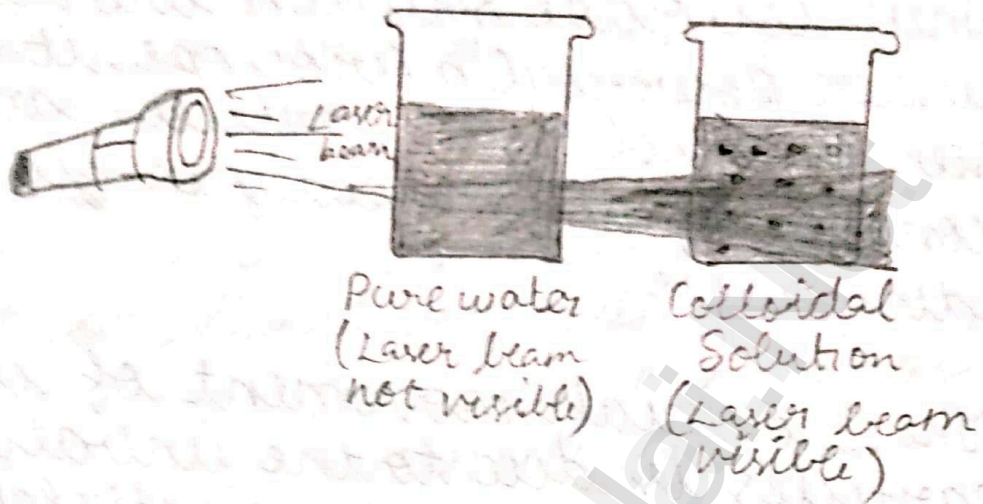 Laser
beam
Pure water
(Laser beam
not visible)
Colloidal
Solution
(Laser beam
visible)